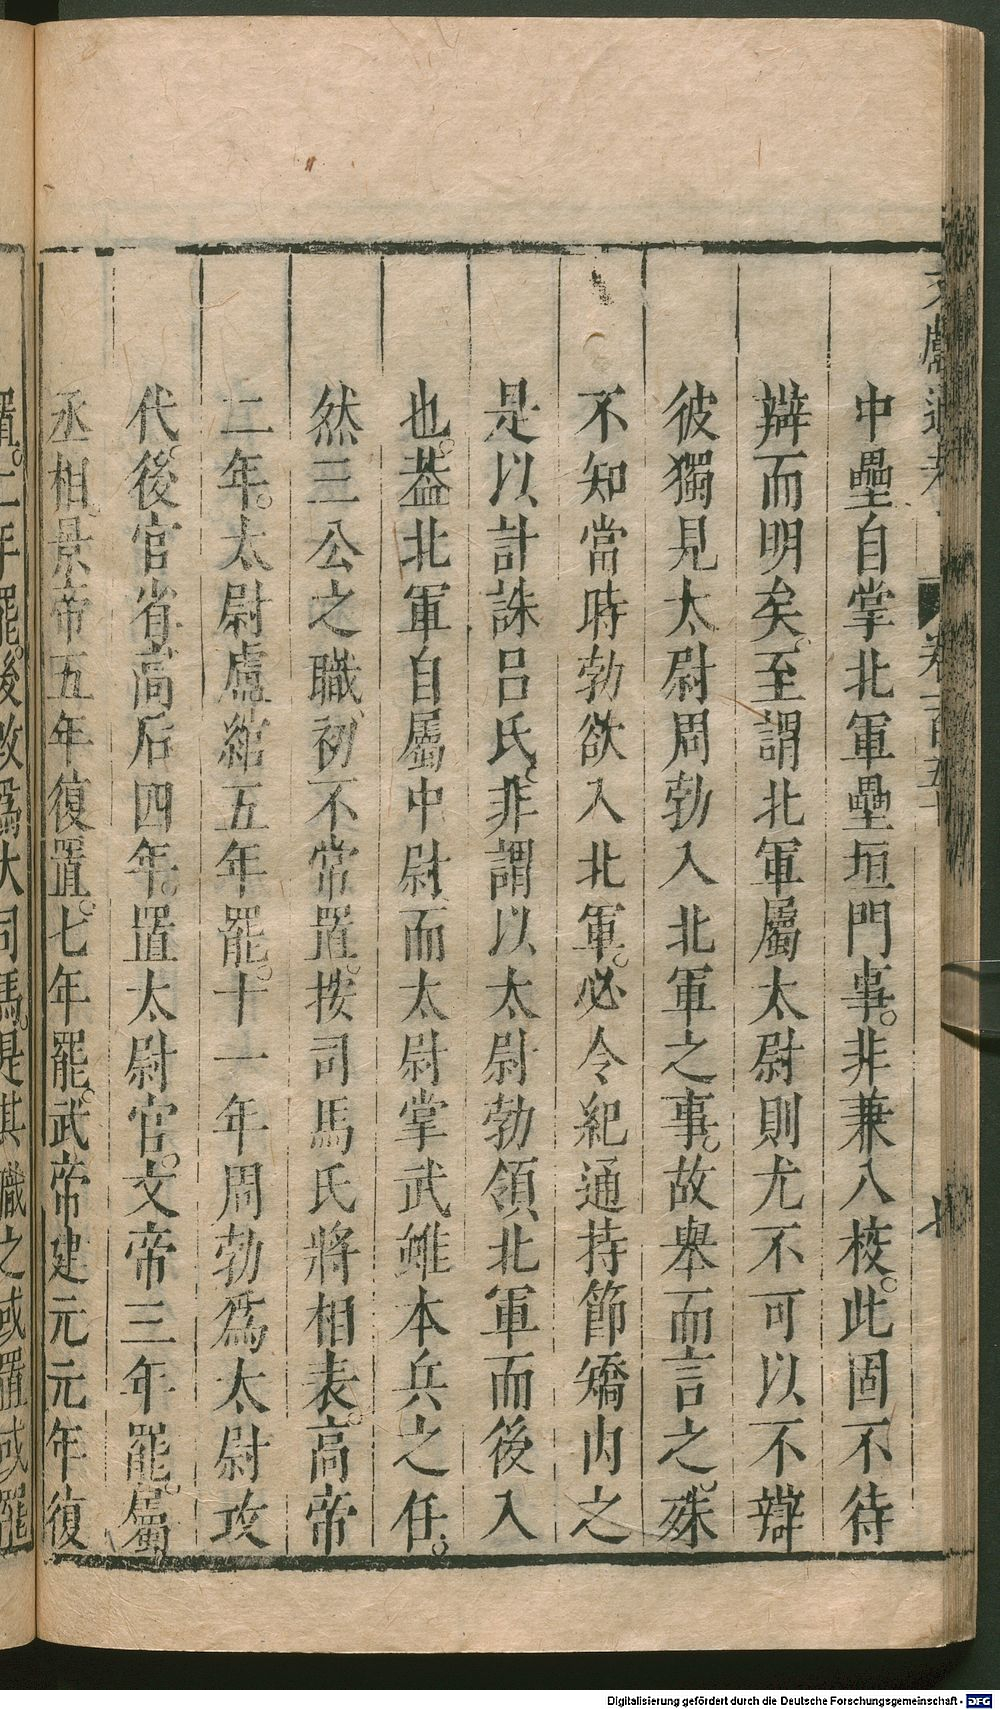 文獻通考 卷一百五十 七
中壘自掌北軍壘垣門事。非兼入校。此固不待
辯而明矣。至謂北軍屬太尉則尤不可以不辯
彼獨見太尉周勃入北軍之事。故舉而言之。殊
不知當時勃欲入北軍。必令紀通持節矯內之
是以計誅呂氏。非謂以太尉勃領北軍而後入
也。葢北軍自屬中尉、而太尉掌武雖本兵之任。
然三公之職、初不常置。按司馬氏將相表。高帝
二年。太尉盧綰五年罷。十一年周勃爲太尉攻
代。後官省。高后四年。置太尉官。文帝三年罷。屬
丞相。景帝五年復置。七年罷。武帝建元元年復
置。二年罷。後改爲大司馬。是其職之或置或罷
Digitalisierung gefördert durch die Deutsche Forschungsgemeinschaft - DFG